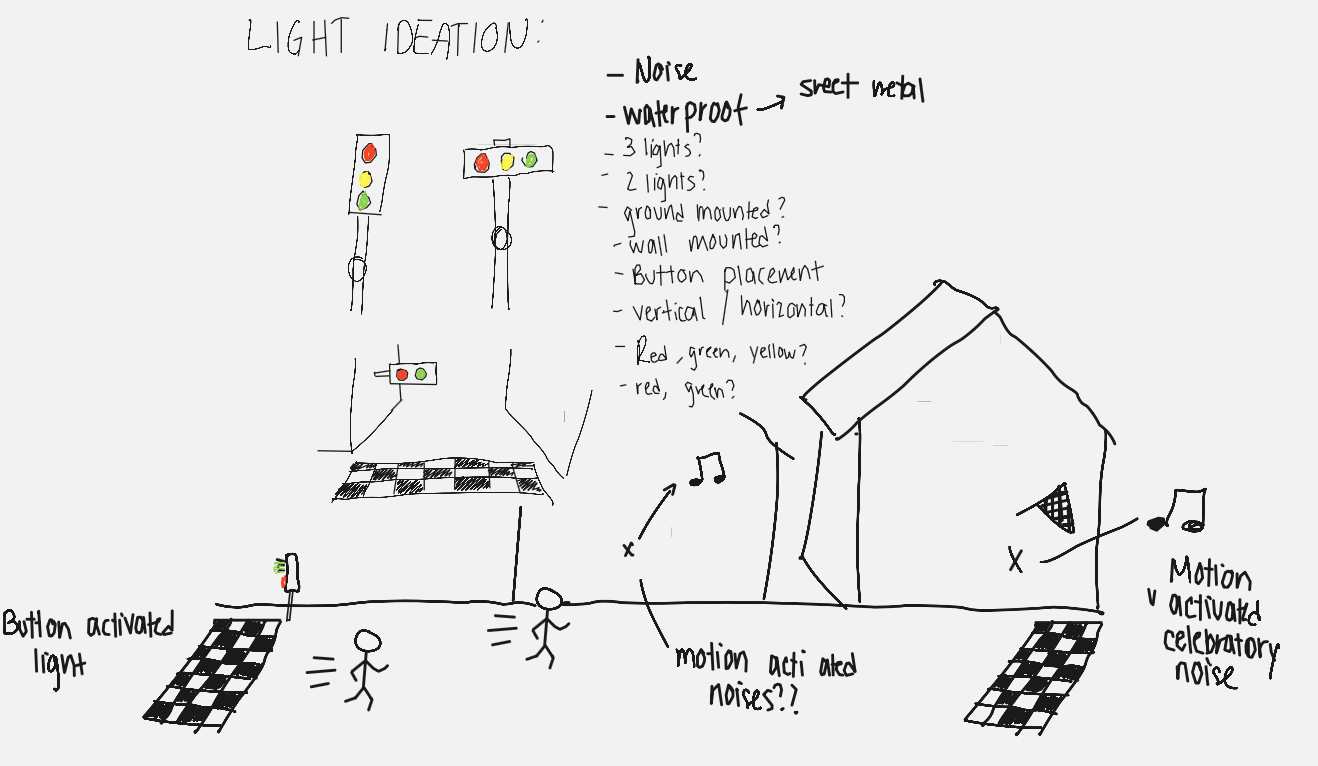 LIGHT IDEATION:
- Noise
- waterproof → sheet metal
- 3 lights?
- 2 lights?
- ground mounted?
- wall mounted?
- Button placement
- vertical / horizontal?
- Red, green, yellow?
- red, green?
Button activated
light
motion acti ated
noises??
Motion
activated
celebratory
noise